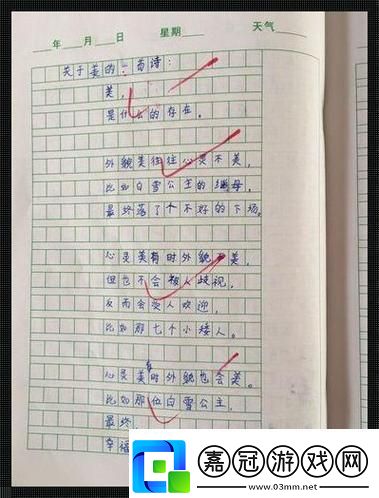 年 月 日 星期 天气
关于美的一首诗：
美，
是什么的存在。
外貌美往往心灵不美，
比如白雪公主的继母，
最终落了个不好的下场。
心灵美有时外貌不美，
但也不会被人歧视，
反而会受人欢迎，
比如那七个小矮人。
心灵美有时外貌也会美。
比如那位白雪公主，
最终
幸福
嘉冠游戏网
www.03mm.net